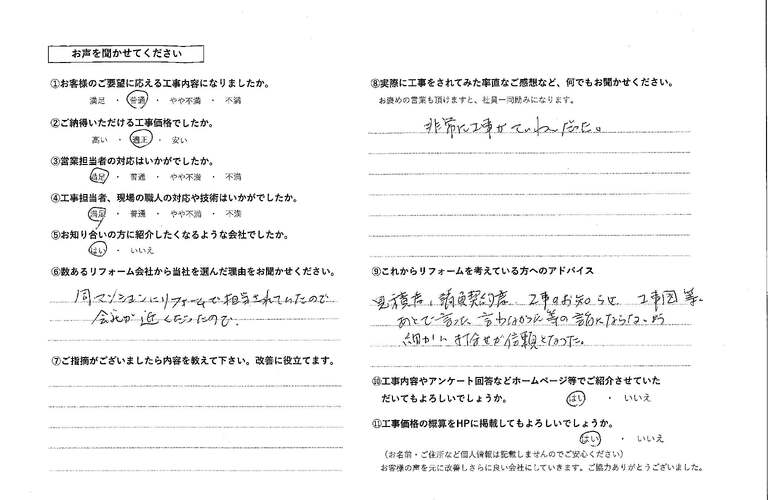 お声を聞かせてください
①お客様のご要望に応える工事内容になりましたか。
満足 ・ 普通 ・ やや不満 ・ 不満
②ご納得いただける工事価格でしたか。
高い ・ 適正 ・ 安い
③営業担当者の対応はいかがでしたか。
満足 ・ 普通 ・ やや不満 ・ 不満
④工事担当者、現場の職人の対応や技術はいかがでしたか。
満足 ・ 普通 ・ やや不満 ・ 不満
⑤お知り合いの方に紹介したくなるような会社でしたか。
はい ・ いいえ
⑥数あるリフォーム会社から当社を選んだ理由をお聞かせください。
同マンションにリフォームで担当されていたので
会社が近くだったので。
⑦ご指摘がございましたら内容を教えて下さい。改善に役立てます。
⑧実際に工事をされてみた率直なご感想など、何でもお聞かせください。
お褒めの言葉も頂けますと、社員一同励みになります。
非常に工事がていねいだった。
⑨これからリフォームを考えている方へのアドバイス
見積書、請負契約書 工事のお知らせ 工事図 等、
あとで言った 言わなかった等の話にならない
細かい打合せが信頼となった。
⑩工事内容やアンケート回答などホームページ等でご紹介させていた
だいてもよろしいでしょうか。 はい ・ いいえ
⑪工事価格の概算をHPに掲載してもよろしいでしょうか。
はい ・ いいえ
（お名前・ご住所など個人情報は記載しませんのでご安心ください）
お客様の声を元に改善しさらに良い会社にしていきます。ご協力ありがとうございました。